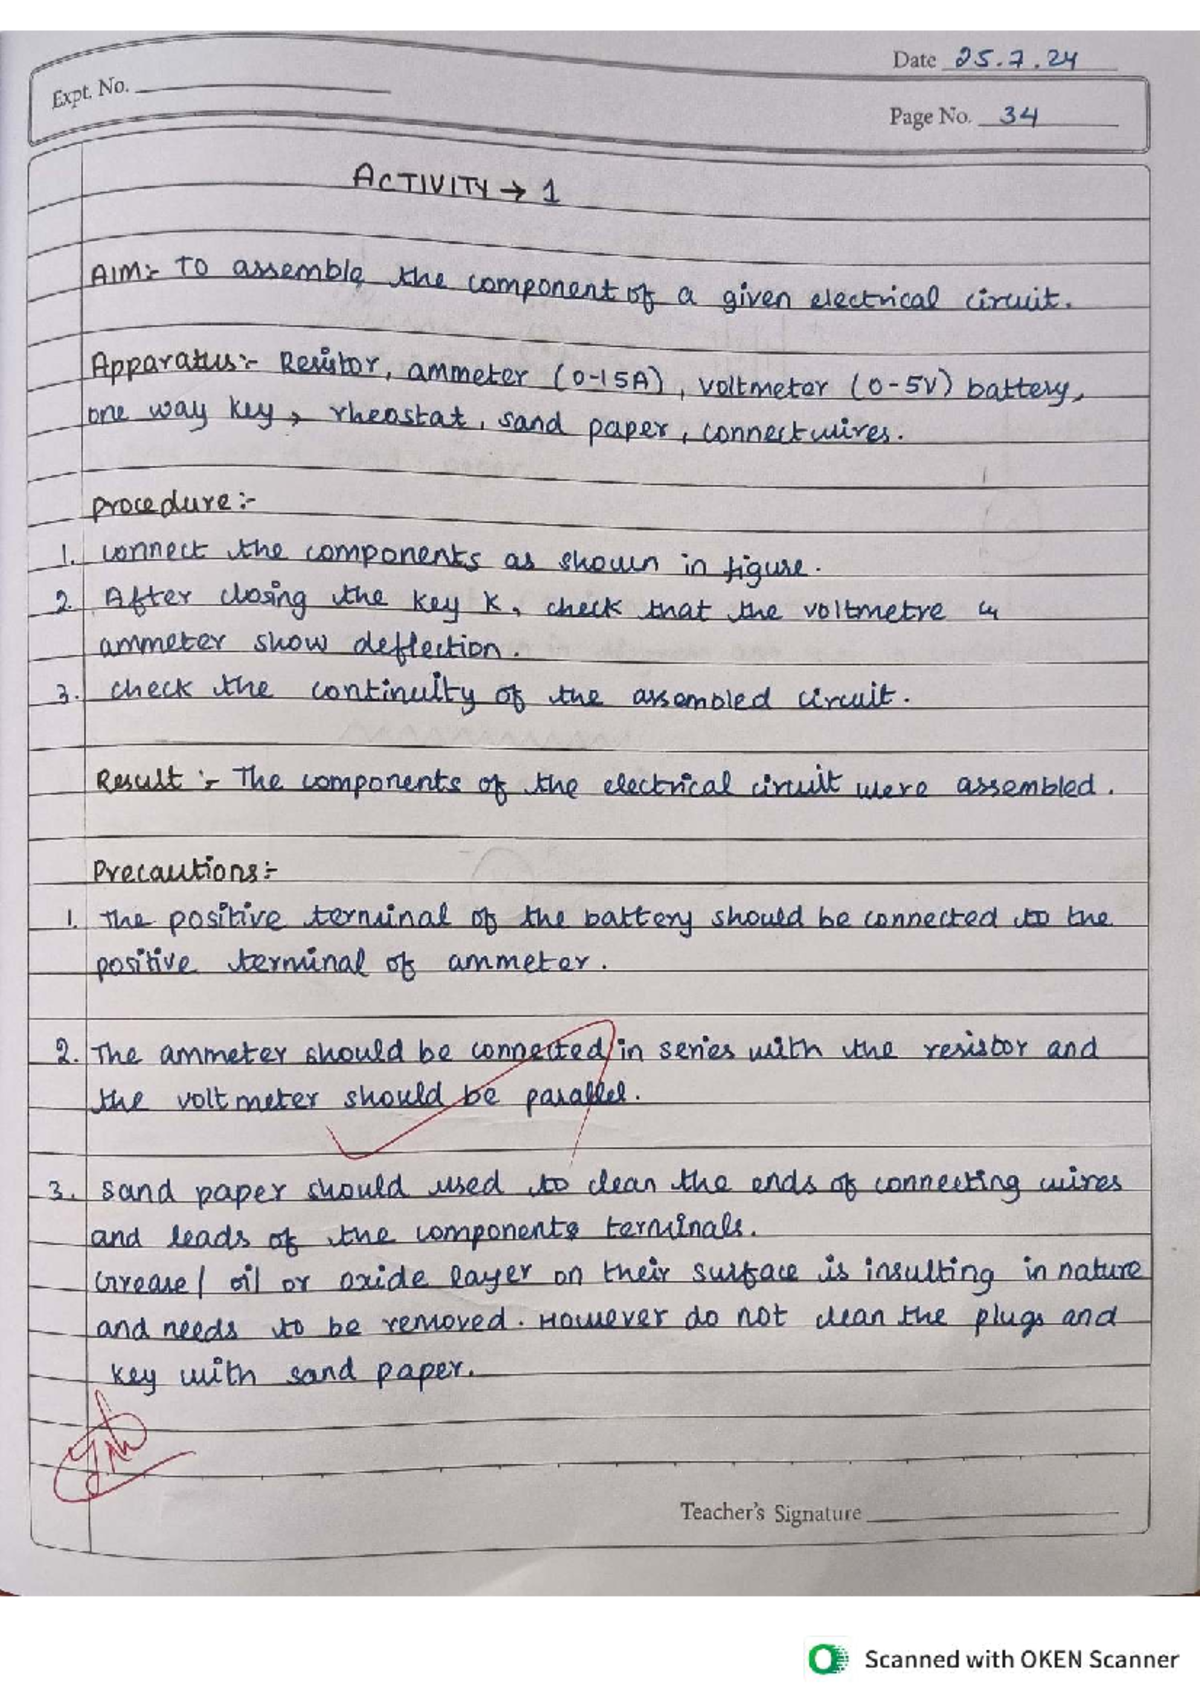 Date 25.7.24
Expt. No.
Page No. 34
ACTIVITY → 1
AIM:- To assemble the component of a given electrical circuit.
Apparatus:- Resistor, ammeter (0-15A), voltmeter (0-5V) battery,
one way key, rheostat, sand paper, connect wires.
Procedure:-
1. connect the components as shown in figure.
2. After closing the key K, check that the voltmetre &
ammeter show deflection.
3. check the continuity of the assembled circuit.
Result :- The components of the electrical circuit were assembled.
Precautions:-
1. The positive terminal of the battery should be connected to the
positive terminal of ammeter.
2. The ammeter should be connected in series with the resistor and
the voltmeter should be parallel.
3. Sand paper should used to clean the ends of connecting wires
and leads of the components terminals.
Grease/ oil or oxide layer on their surface is insulting in nature
and needs to be removed. However do not clean the plugs and
key with sand paper.
Teacher's Signature
Scanned with OKEN Scanner